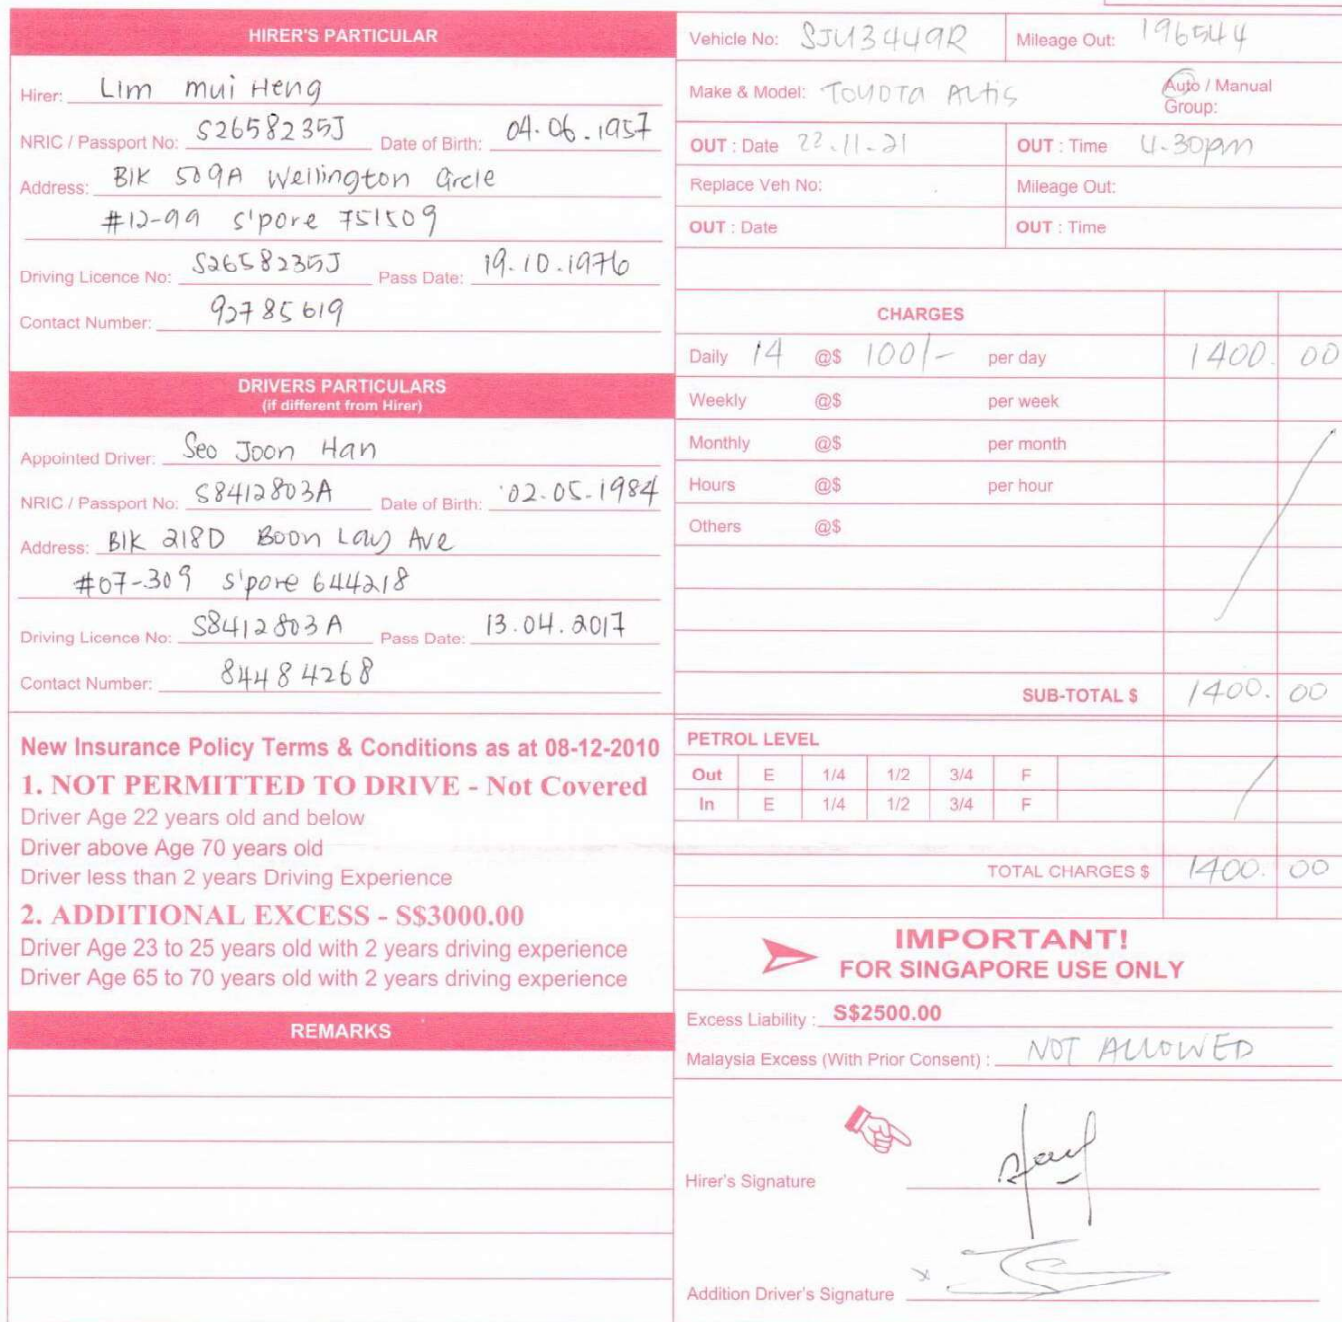 HIRER'S PARTICULAR
Hirer: Lim mui Heng
NRIC / Passport No: S2658235J Date of Birth: 04.06.1957
Address: Blk 509A Wellington Circle
#12-99 S'pore 751509
Driving Licence No: S2658235J Pass Date: 19.10.1976
Contact Number: 92785619
DRIVERS PARTICULARS
(if different from Hirer)
Appointed Driver: Seo Joon Han
NRIC / Passport No: S8412803A Date of Birth: 02.05.1984
Address: Blk 218D Boon Lay Ave
#07-309 S'pore 644218
Driving Licence No: S8412803A Pass Date: 13.04.2017
Contact Number: 84484268
New Insurance Policy Terms & Conditions as at 08-12-2010
1. NOT PERMITTED TO DRIVE - Not Covered
Driver Age 22 years old and below
Driver above Age 70 years old
Driver less than 2 years Driving Experience
2. ADDITIONAL EXCESS - S$3000.00
Driver Age 23 to 25 years old with 2 years driving experience
Driver Age 65 to 70 years old with 2 years driving experience
REMARKS
Vehicle No: SJU3449R Mileage Out: 196544
Make & Model: TOYOTA ALTIS Auto / Manual
Group:
OUT : Date 22.11.21 OUT : Time 4.30pm
Replace Veh No: Mileage Out:
OUT : Date OUT : Time
CHARGES
Daily 14 @$ 100/- per day 1400. 00
Weekly @$ per week
Monthly @$ per month
Hours @$ per hour
Others @$
SUB-TOTAL $ 1400. 00
PETROL LEVEL
Out E 1/4 1/2 3/4 F
In E 1/4 1/2 3/4 F
TOTAL CHARGES $ 1400. 00
IMPORTANT!
FOR SINGAPORE USE ONLY
Excess Liability : S$2500.00
Malaysia Excess (With Prior Consent) : NOT ALLOWED
Hirer's Signature
x
Addition Driver's Signature